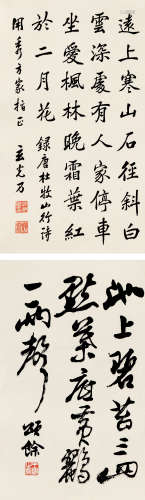 遠上寒山石徑斜白
雲深處有人家停車
坐愛楓林晚霜葉紅
於二月花 録唐杜牧山行詩
用秀方家指正
池上碧苔三四
點葉底黃鸝
一兩聲